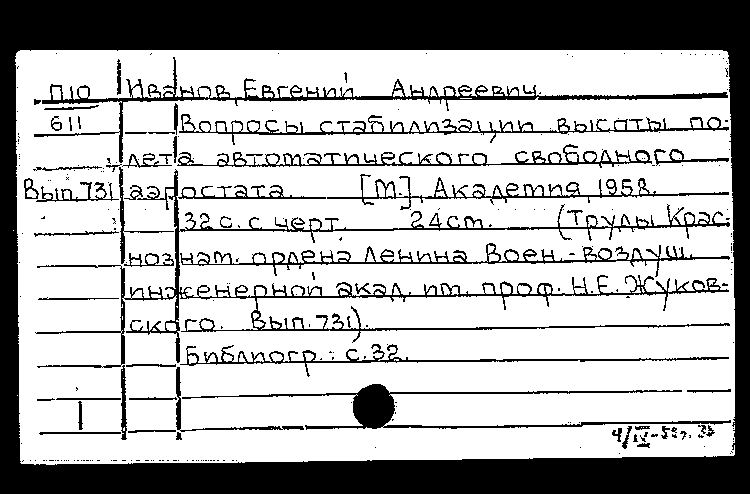 П10 Иванов, Евгений Андреевич.
611 Вопросы стабилизации высоты по-
лета автоматического свободного
Вып. 731 аэростата. [М.], Академия, 1958.
32 с. с черт. 24 cm. (Труды Крас-
нознам. ордена Ленина Воен.-воздуш.
инженерной акад. им. проф. Н.Е. Жуков-
ского. Вып. 731).
Библиогр.: с. 32.
1
4/IV-59г.